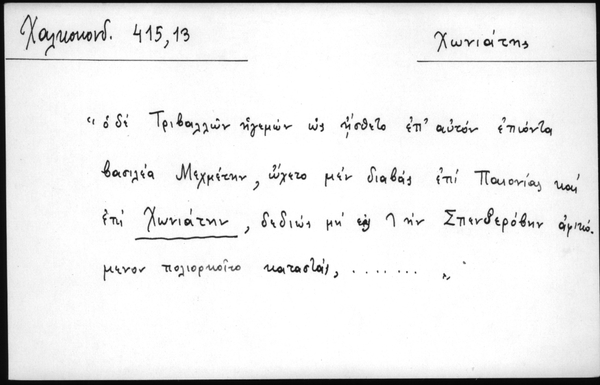 Χαλκοκονδ. 415,13
Χωνιάτης
"ὁ δέ Τριβαλλῶν ἡγεμών ὡς ᾔσθετο ἐπ' αὐτόν ἐπιόντα
βασιλέα Μεχμέτην, ᾤχετο μέν διαβάς ἐπί Παιονίας καί
ἐπί Χωνιάτην, δεδιώς μή ἐς τήν Σπενδερόβην ἀφικό-
μενον πολιορκοῖτο καταστάς, ........ "